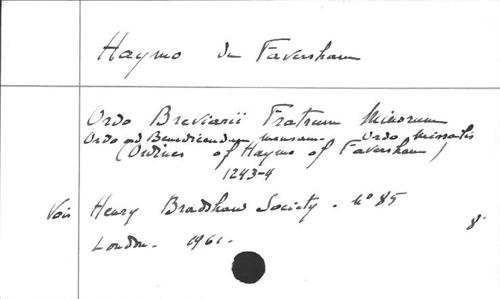 Haymo de Faversham
Ordo Breviarii Fratrum Minorum
Ordo ad Benedicendum mensam - Ordo Missalis
(Ordines of Haymo of Faversham)
1243-4
Voir Henry Bradshaw Society. No 85
8°
London. 1961.